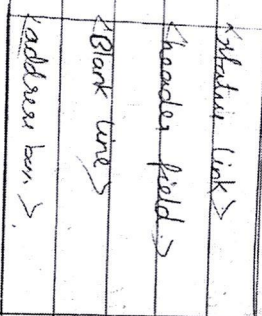 <status link>
<header field>
<Blank line>
<address >.